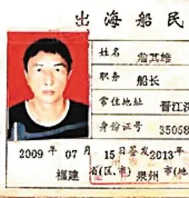 出海船民
姓名
职务 船长
常住地址 晋江
身份证号 35058
2009 年 07 月 15 日签发 2013 年
福建 省(区、市) 泉州 市(地